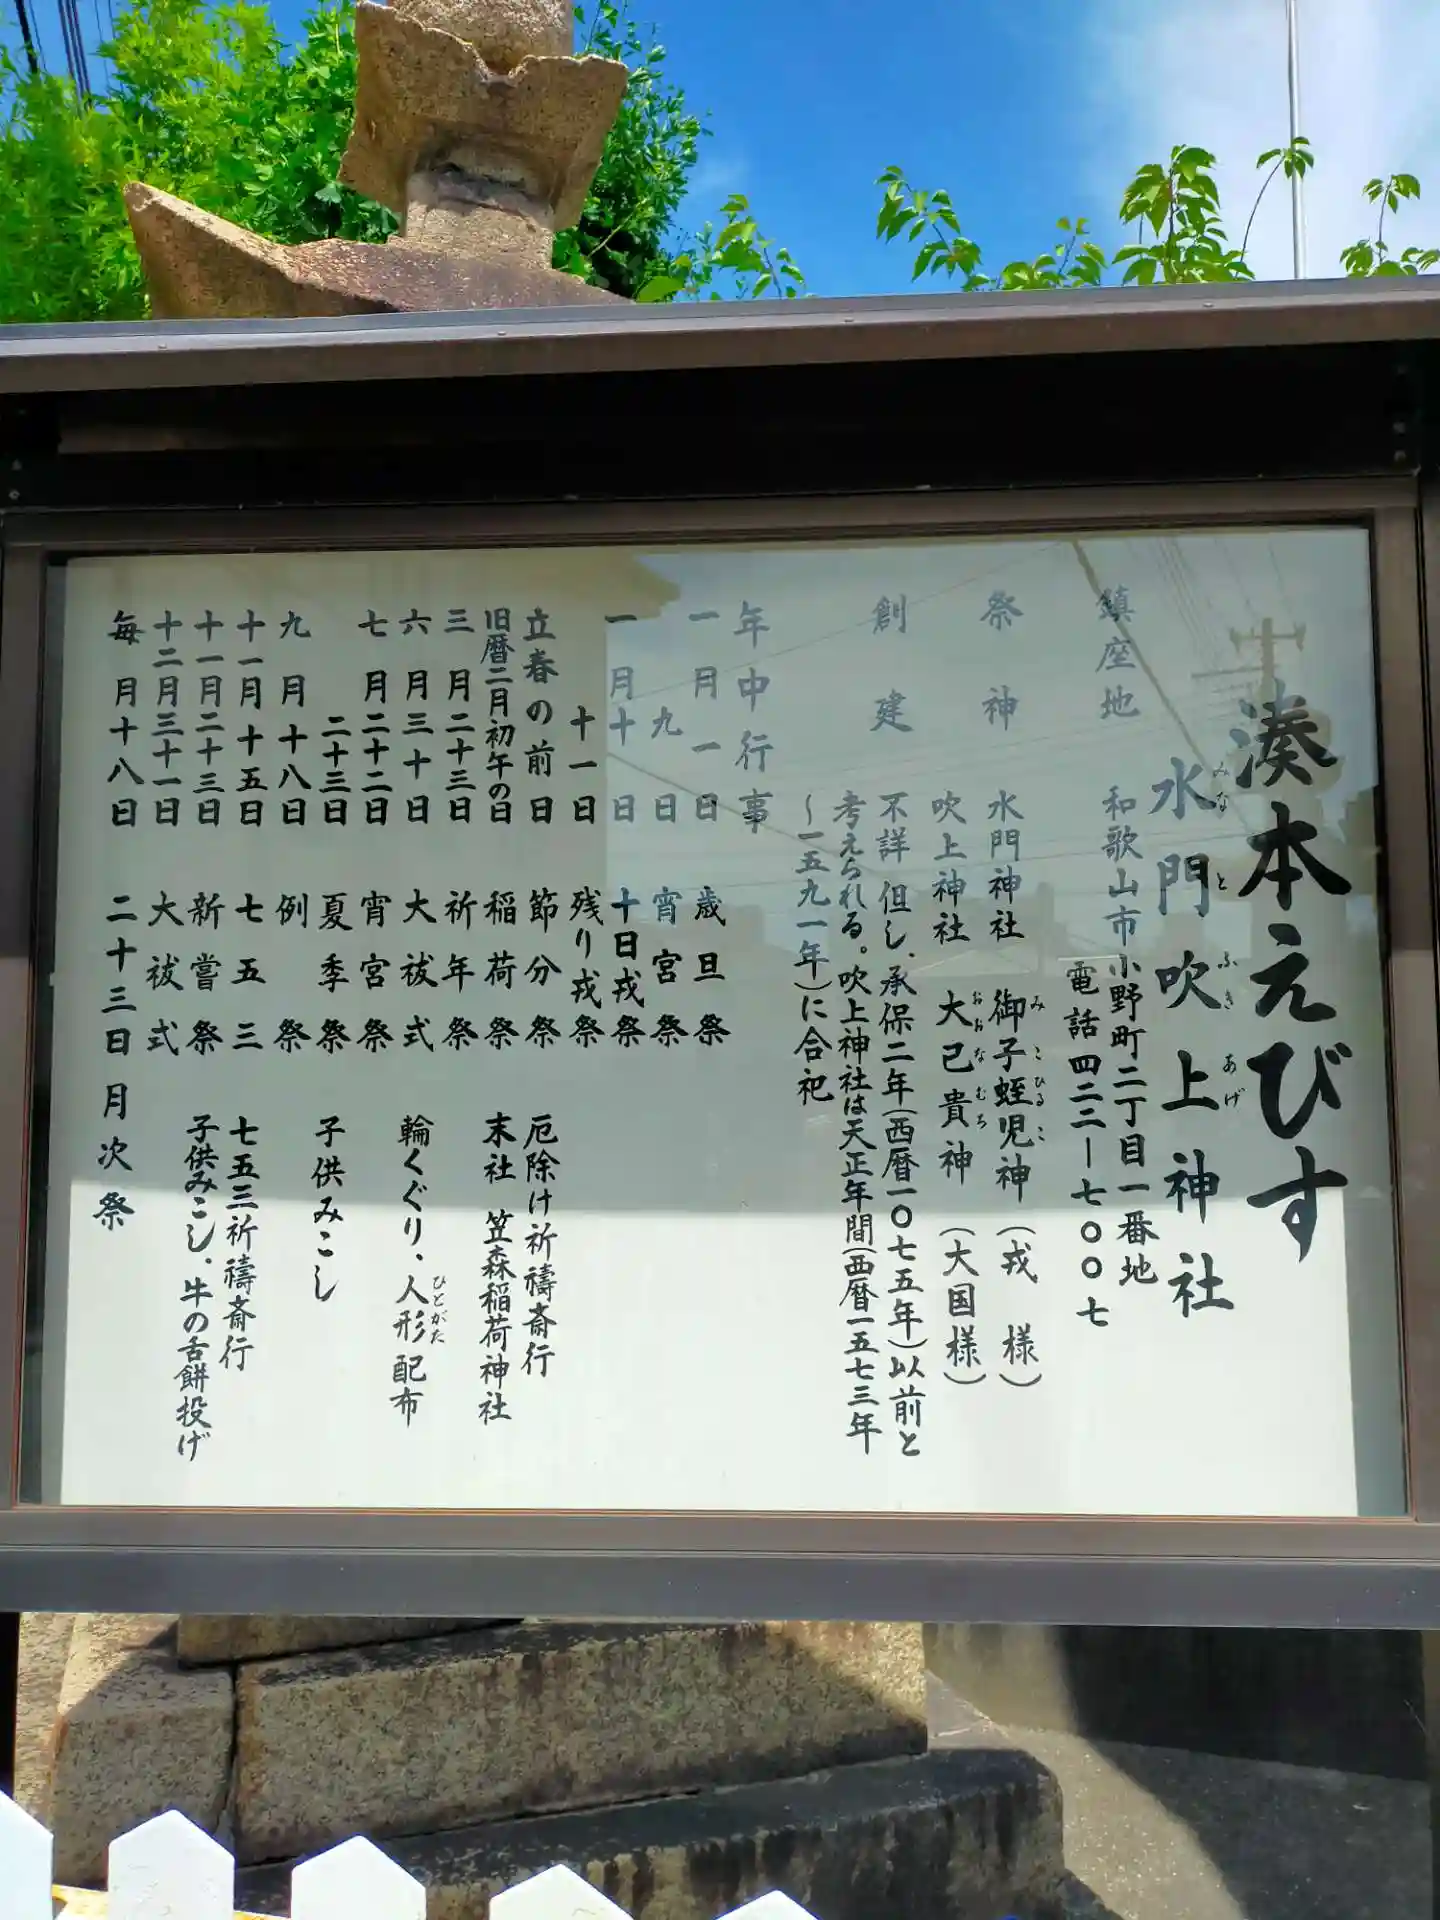 湊本えびす
水門吹上神社
みなとふきあげ
鎮座地 和歌山市小野町二丁目一番地
電話四二二ー七〇〇七
祭神 水門神社 御子蛭児神（戎様）
みこひるこ
吹上神社 大己貴神（大国様）
おおなむち
創建 不詳 但し、承保二年（西暦一〇七五年）以前と
考えられる。吹上神社は天正年間（西暦一五七三年
〜一五九一年）に合祀
年中行事
一月一日 歳旦祭
九日 宵宮祭
一月十日 十日戎祭
十一日 残り戎祭
立春の前日 節分祭 厄除け祈禱斎行
旧暦二月初午の日 稲荷祭 末社 笠森稲荷神社
三月二十三日 祈年祭
六月三十日 大祓式 輪くぐり、人形配布
ひとがた
七月二十二日 宵宮祭
二十三日 夏季祭 子供みこし
九月十八日 例祭
十一月十五日 七五三 七五三祈禱斎行
十一月二十三日 新嘗祭 子供みこし、牛の舌餅投げ
十二月三十一日 大祓式
毎月十八日 二十三日 月次祭